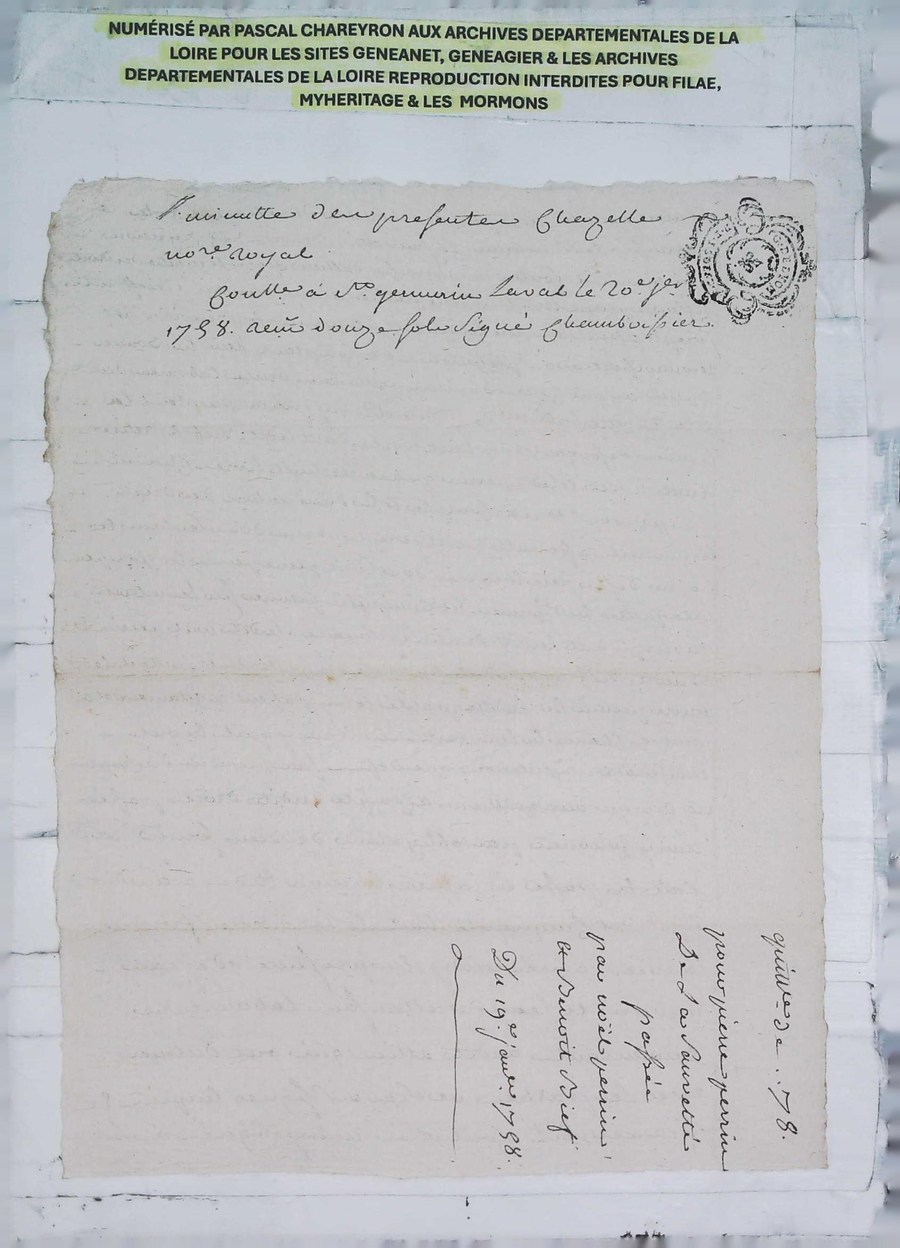 NUMÉRISÉ PAR PASCAL CHAREYRON AUX ARCHIVES DEPARTEMENTALES DE LA
LOIRE POUR LES SITES GENEANET, GENEAGIER & LES ARCHIVES
DEPARTEMENTALES DE LA LOIRE REPRODUCTION INTERDITES POUR FILAE,
MYHERITAGE & LES MORMONS
minutte des presentes Chazelle
nore. royal
Contte. á St. germain Laval le 20e. jer
1758. douze sols signé Chamboissier.
quitce. de 78.
pour pierre perrin
De La
passée
par noël perrin
et Benoit Bief
Du 19e. janr. 1758.